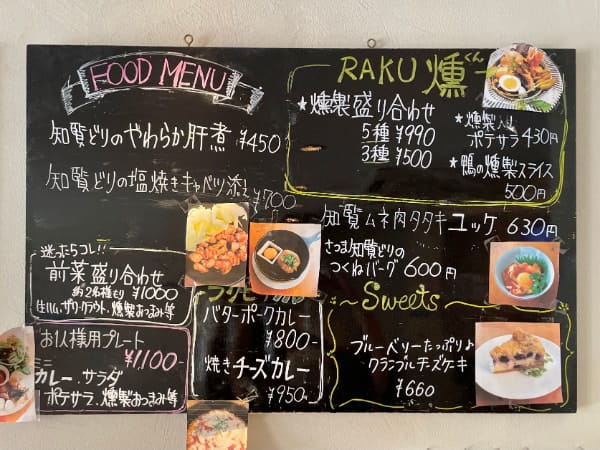 FOOD MENU
知覧どりのやわらか肝煮 ¥450
知覧どりの塩焼きキャベツ添え ¥700
迷ったらコレ!!
前菜盛り合わせ
約2名様もり ¥1000
生ハム、ザワークラウト、燻製おつまみ等
お1人様用プレート
¥1,100-
ミニ
カレー、サラダ
ポテサラ、燻製おつまみ等
バターポークカレー
¥800-
焼きチーズカレー
¥950-
RAKU燻くん
★燻製盛り合わせ
5種 ¥990
3種 ¥500
★燻製入り
ポテサラ 430円
★鴨の燻製スライス
500円
知覧ムネ肉タタキユッケ 630円
さつま知覧どりの
つくねバーグ 600円
~Sweets~
ブルーベリーたっぷり♪
クランブルチーズケーキ
¥660